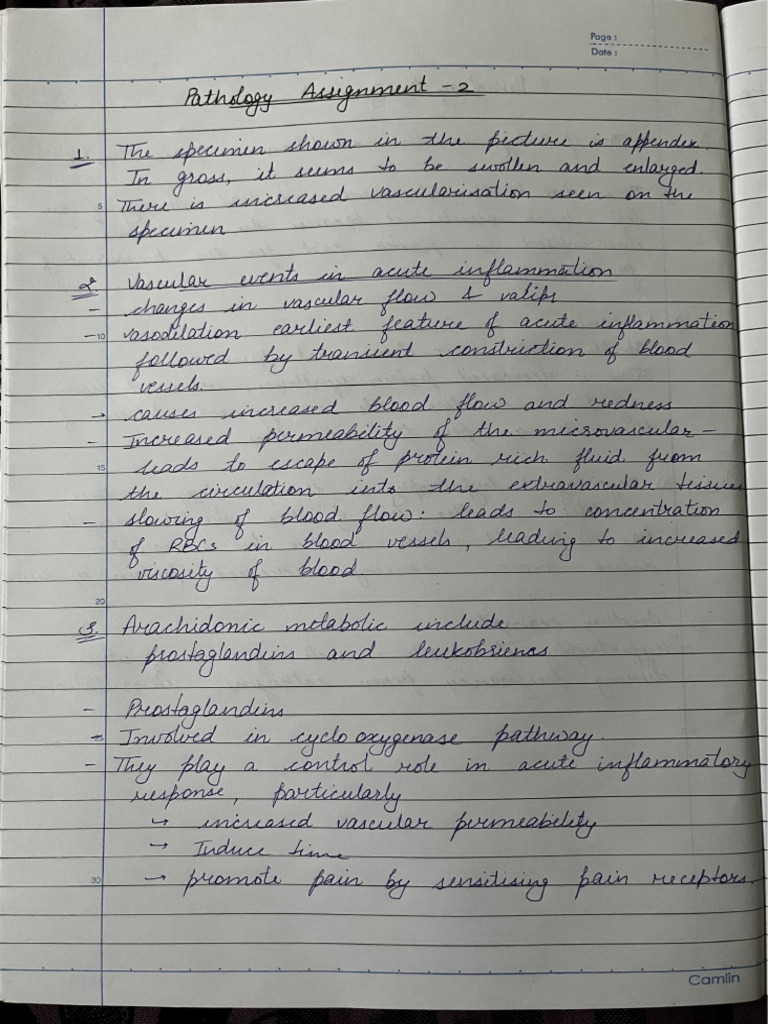 Page :
Date :
Pathology Assignment - 2
1. The specimen shown in the picture is appendex.
In gross, it seems to be swollen and enlarged.
5 There is increased vascularisation seen on the
specimen
2. Vascular events in acute inflammation
- changes in vascular flow &
-10 vasodilation earliest feature of acute inflammation
followed by transient constriction of blood
vessels.
→ causes increased blood flow and redness
- Increased permeability of the microvascular -
15 leads to escape of protein rich fluid from
the circulation into the extravascular tissues
- slowing of blood flow: leads to concentration
of RBCs in blood vessels, leading to increased
viscosity of blood
20
3. Arachidonic metabolic include
prostaglandins and leukobrienes
- Prostaglandins
- 25 Involved in cyclo oxygenase pathway.
- They play a control role in acute inflammatory
response, particularly
→ increased vascular permeability
→ Induce time
30 → promote pain by sensitising pain receptors.
Camlin